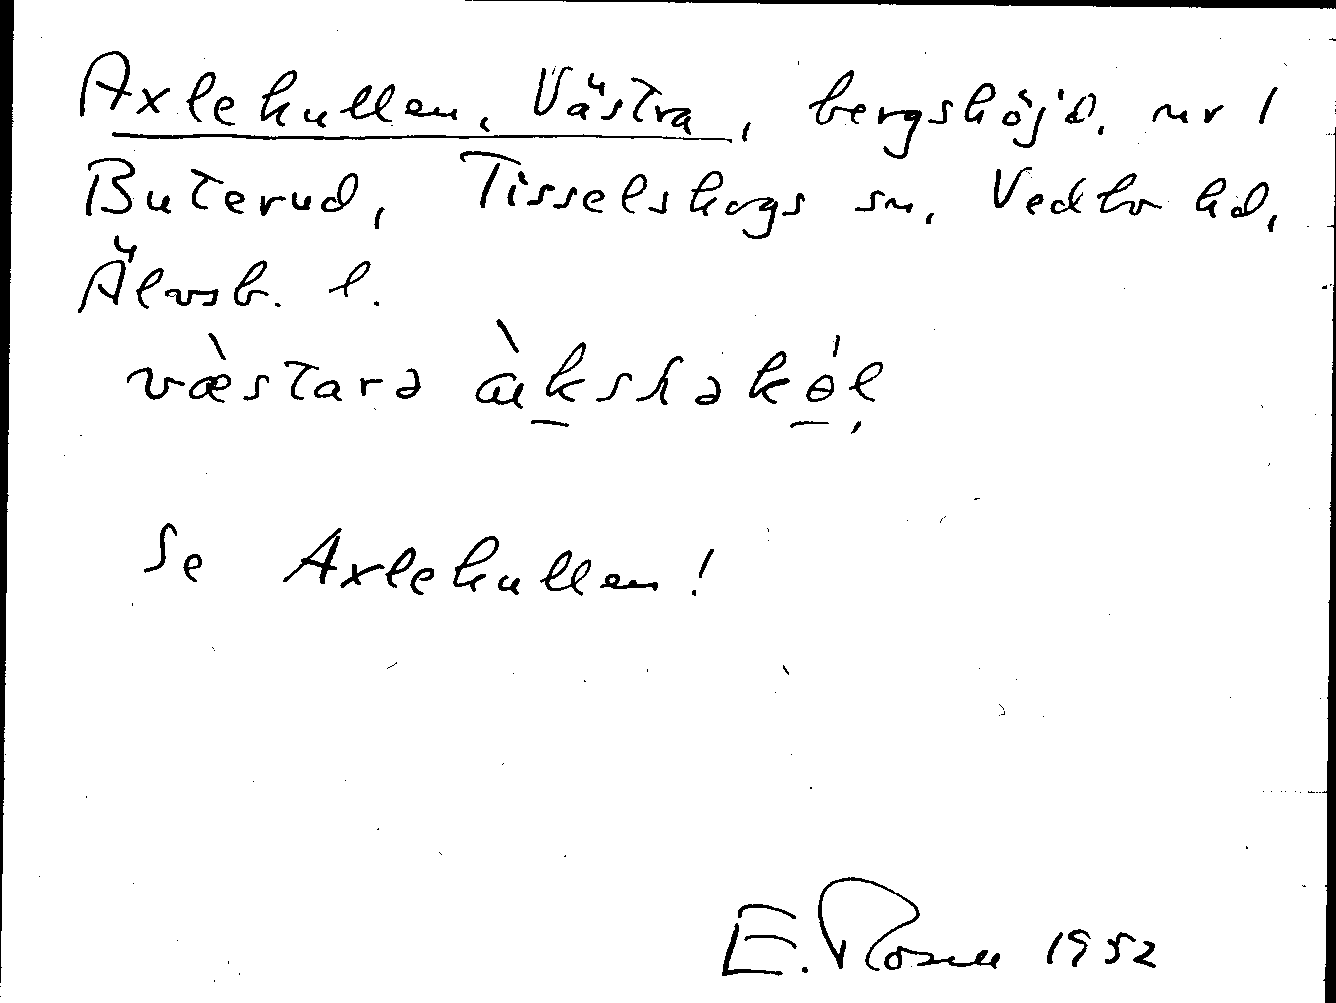 Axlekullen, Västra, bergshöjd, nr 1
Buterud, Tisselskogs sn, Vedbo hd,
Älvsb. l.
væ̀starə
Se Axlekullen!
E. Rosell 1952